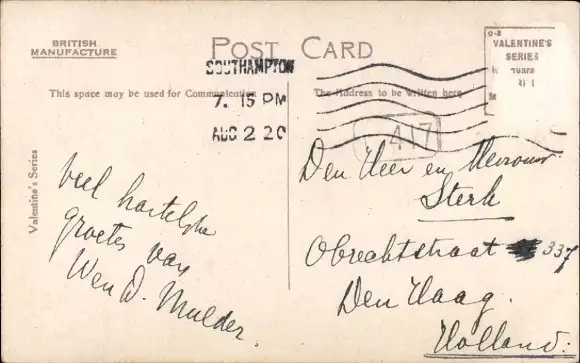 BRITISH
MANUFACTURE
POST CARD
SOUTHAMPTON
7. 15 PM
AUG 2 20
O-2
VALENTINE'S
SERIES
This space may be used for Communication
The Address to be written here
417
Valentine's Series
veel hartelijke
groetes van
W en D. Mulder.
Den Heer en Mevrouw
Sterk
Obrechtstraat 337
Den Haag.
Holland.